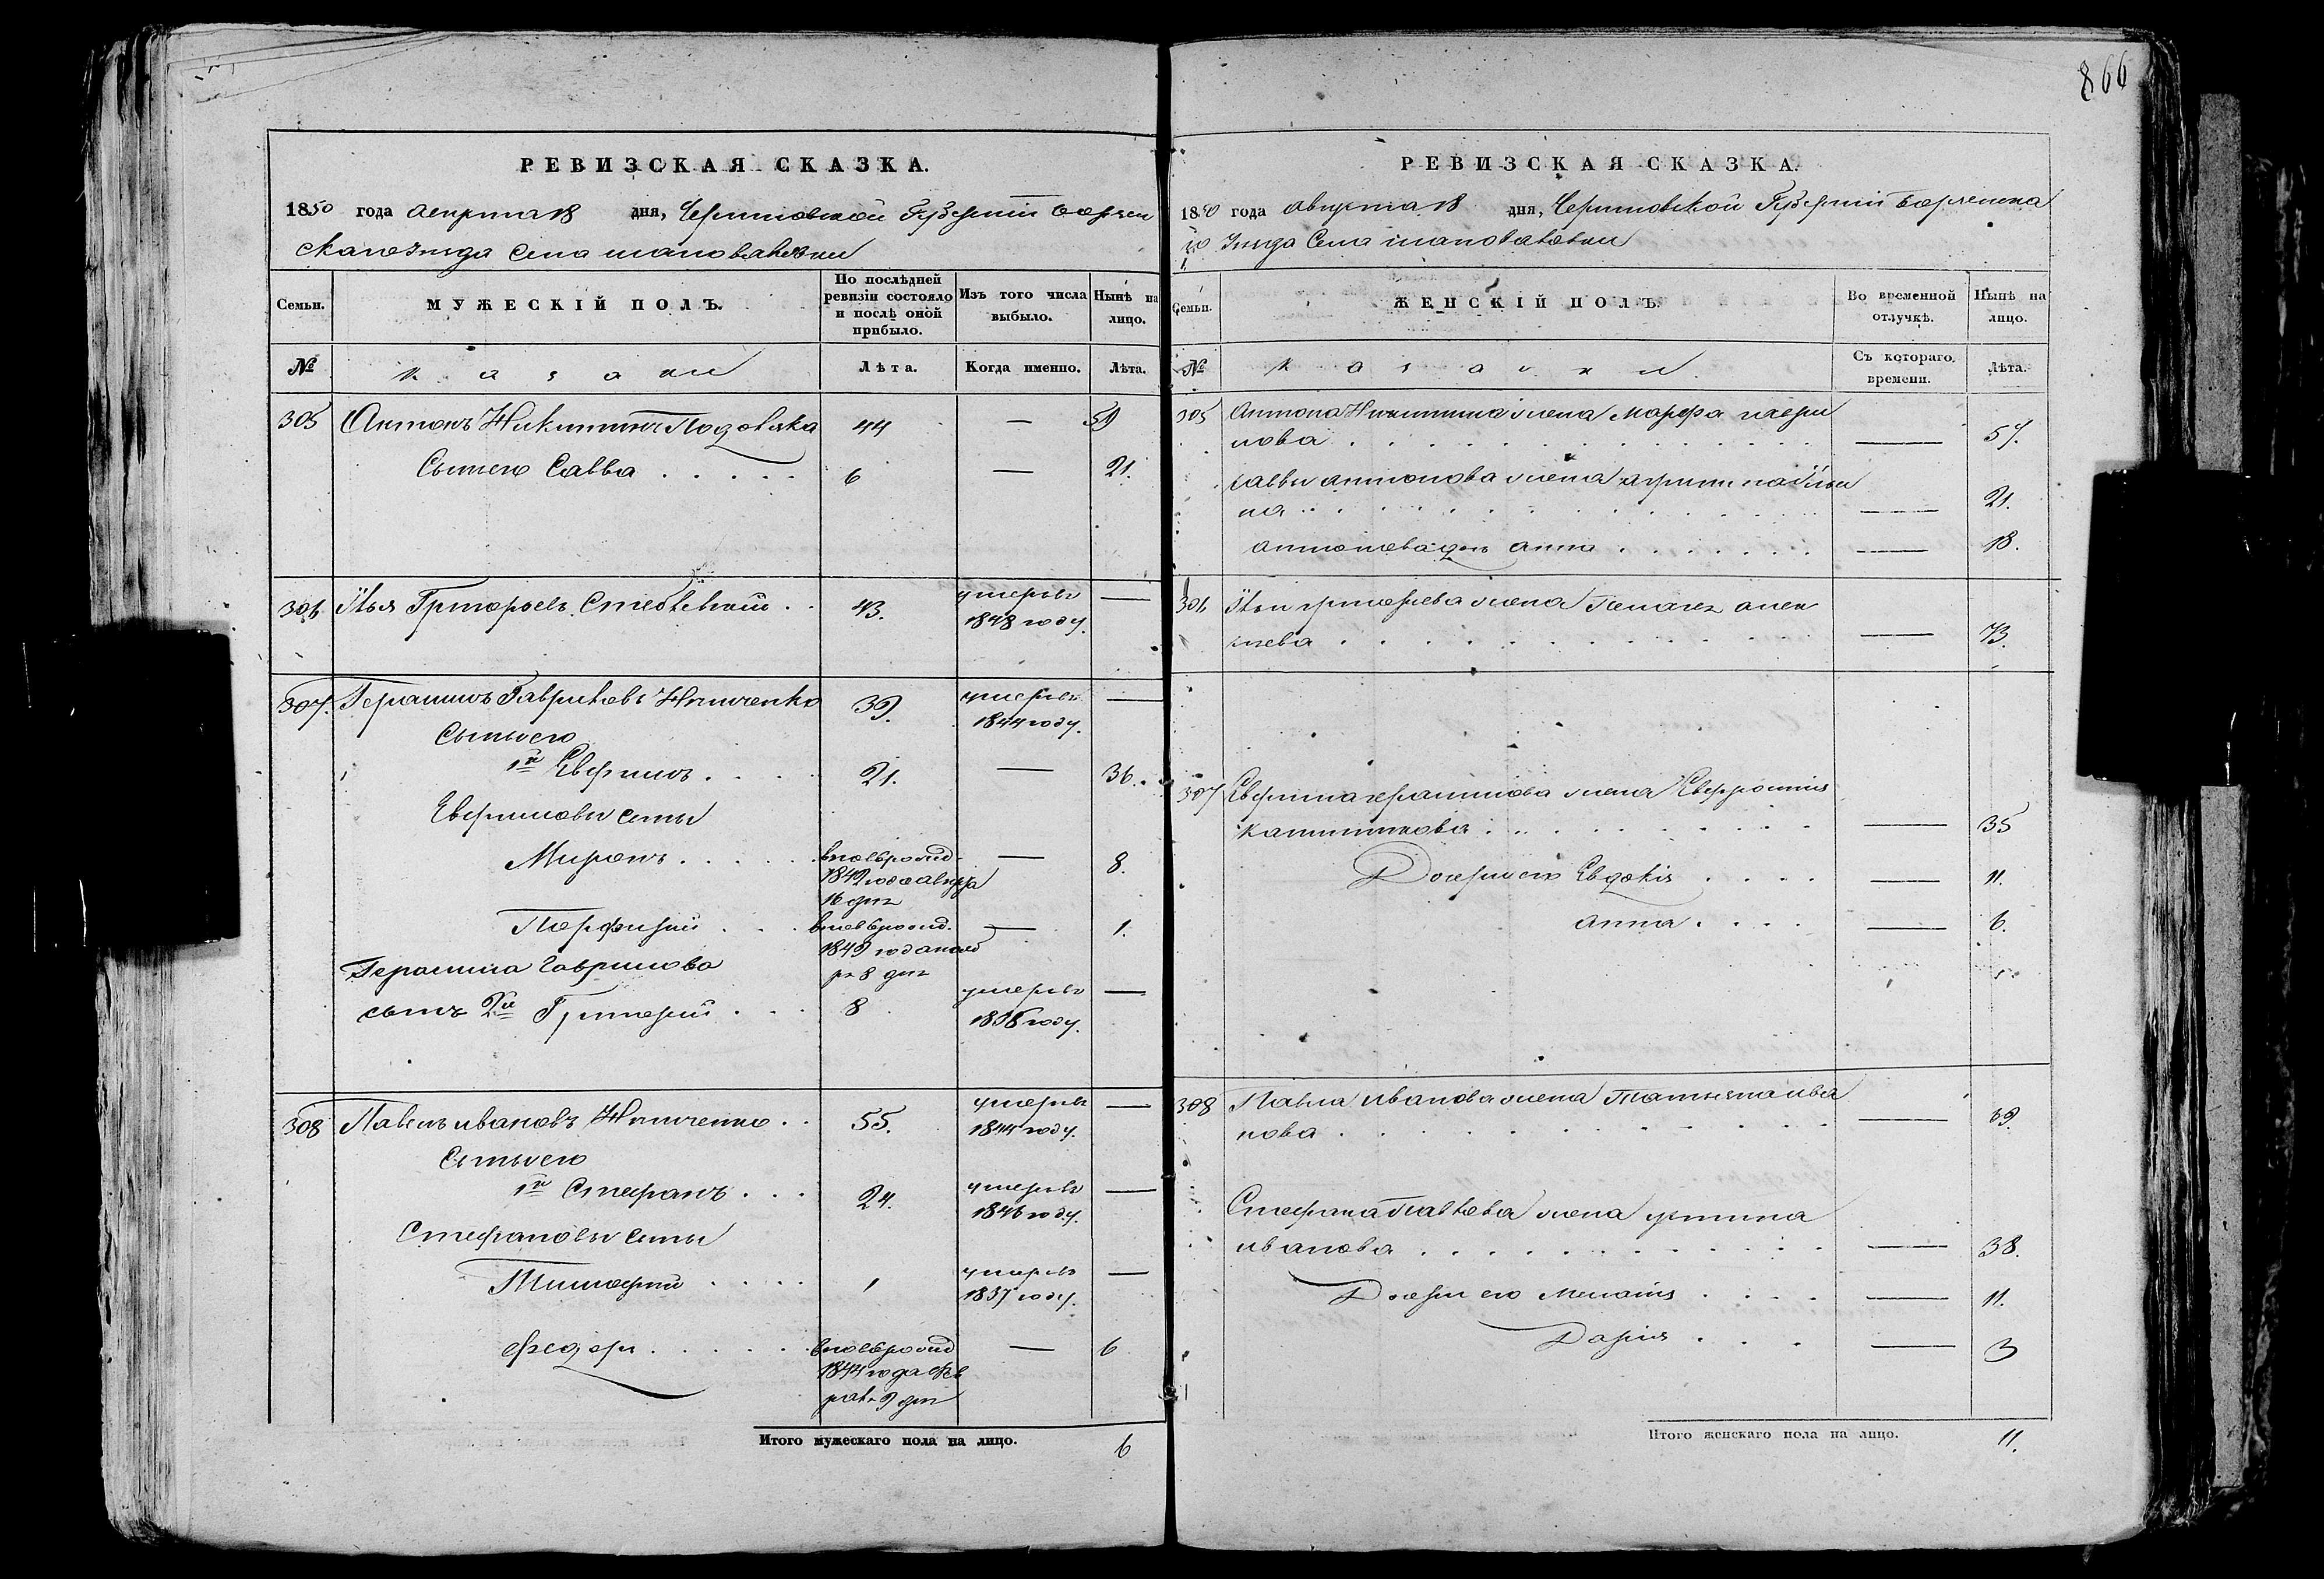 866
РЕВИЗСКАЯ СКАЗКА.
1850 года августа 18 дня, Черниговской Губерніи Борзен
скаго Уезда Села Шаповаловки
Семьи. МУЖЕСКІЙ ПОЛЪ. По послѣдней ревизіи состояло и послѣ оной прибыло. Изъ того числа выбыло. Нынѣ на лицо.
№ казаки Лѣта. Когда именно. Лѣта.
305 Антонъ Никитинъ 44 — 59
Сынъ его Савва 6 — 21.
306 Илья Григорьевъ 43. умеръ 1848 году. —
307. Герасимъ Гавриловъ Ничченко 39. умеръ 1844 году. —
Сыны его
1й Евфимъ 21. — 36.
Евфимовы сыны
Миронъ вновьрожд. 1842 года августа 16 дня — 8.
Порфирій вновьрожд. 1849 года 8 дня — 1.
Герасима Гаврилова
сынъ 2й Григорій 8 умеръ 1836 году. —
308 Павелъ Ивановъ Ничченко 55. умеръ 1844 году. —
Сыны его
1й Стефанъ 24. умеръ 1846 году. —
Стефановы сыны
Тимофей 1 умеръ 1837 году. —
Федоръ вновьрожд 1844 года февраля 9 дня — 6
Итого мужескаго пола на лицо. 6
РЕВИЗСКАЯ СКАЗКА.
1850 года августа 18 дня, Черниговской Губерніи Борзенска
го Уезда Села Шаповаловки
Семьи. ЖЕНСКІЙ ПОЛЪ. Во временной отлучкѣ. Нынѣ на лицо.
№ Съ котораго времени. Лѣта.
305 Антона Никитина жена Марфа
нова — 57.
Саввы Антонова жена
на — 21.
Антонова дочь Анна — 18.
306 Ильи Григорьева жена Пелагея Алек
сѣева — 73.
307 Евфима Герасимова жена Евфросинія
— 35
Дочери его Евдокія — 11.
Анна — 6.
308 Павла Иванова жена Татьяна Ива
нова —
Стефана Павлова жена Устина
Иванова — 38.
Дочери его Меланія — 11.
Дарія — 3
Итого женскаго пола на лицо. 11.